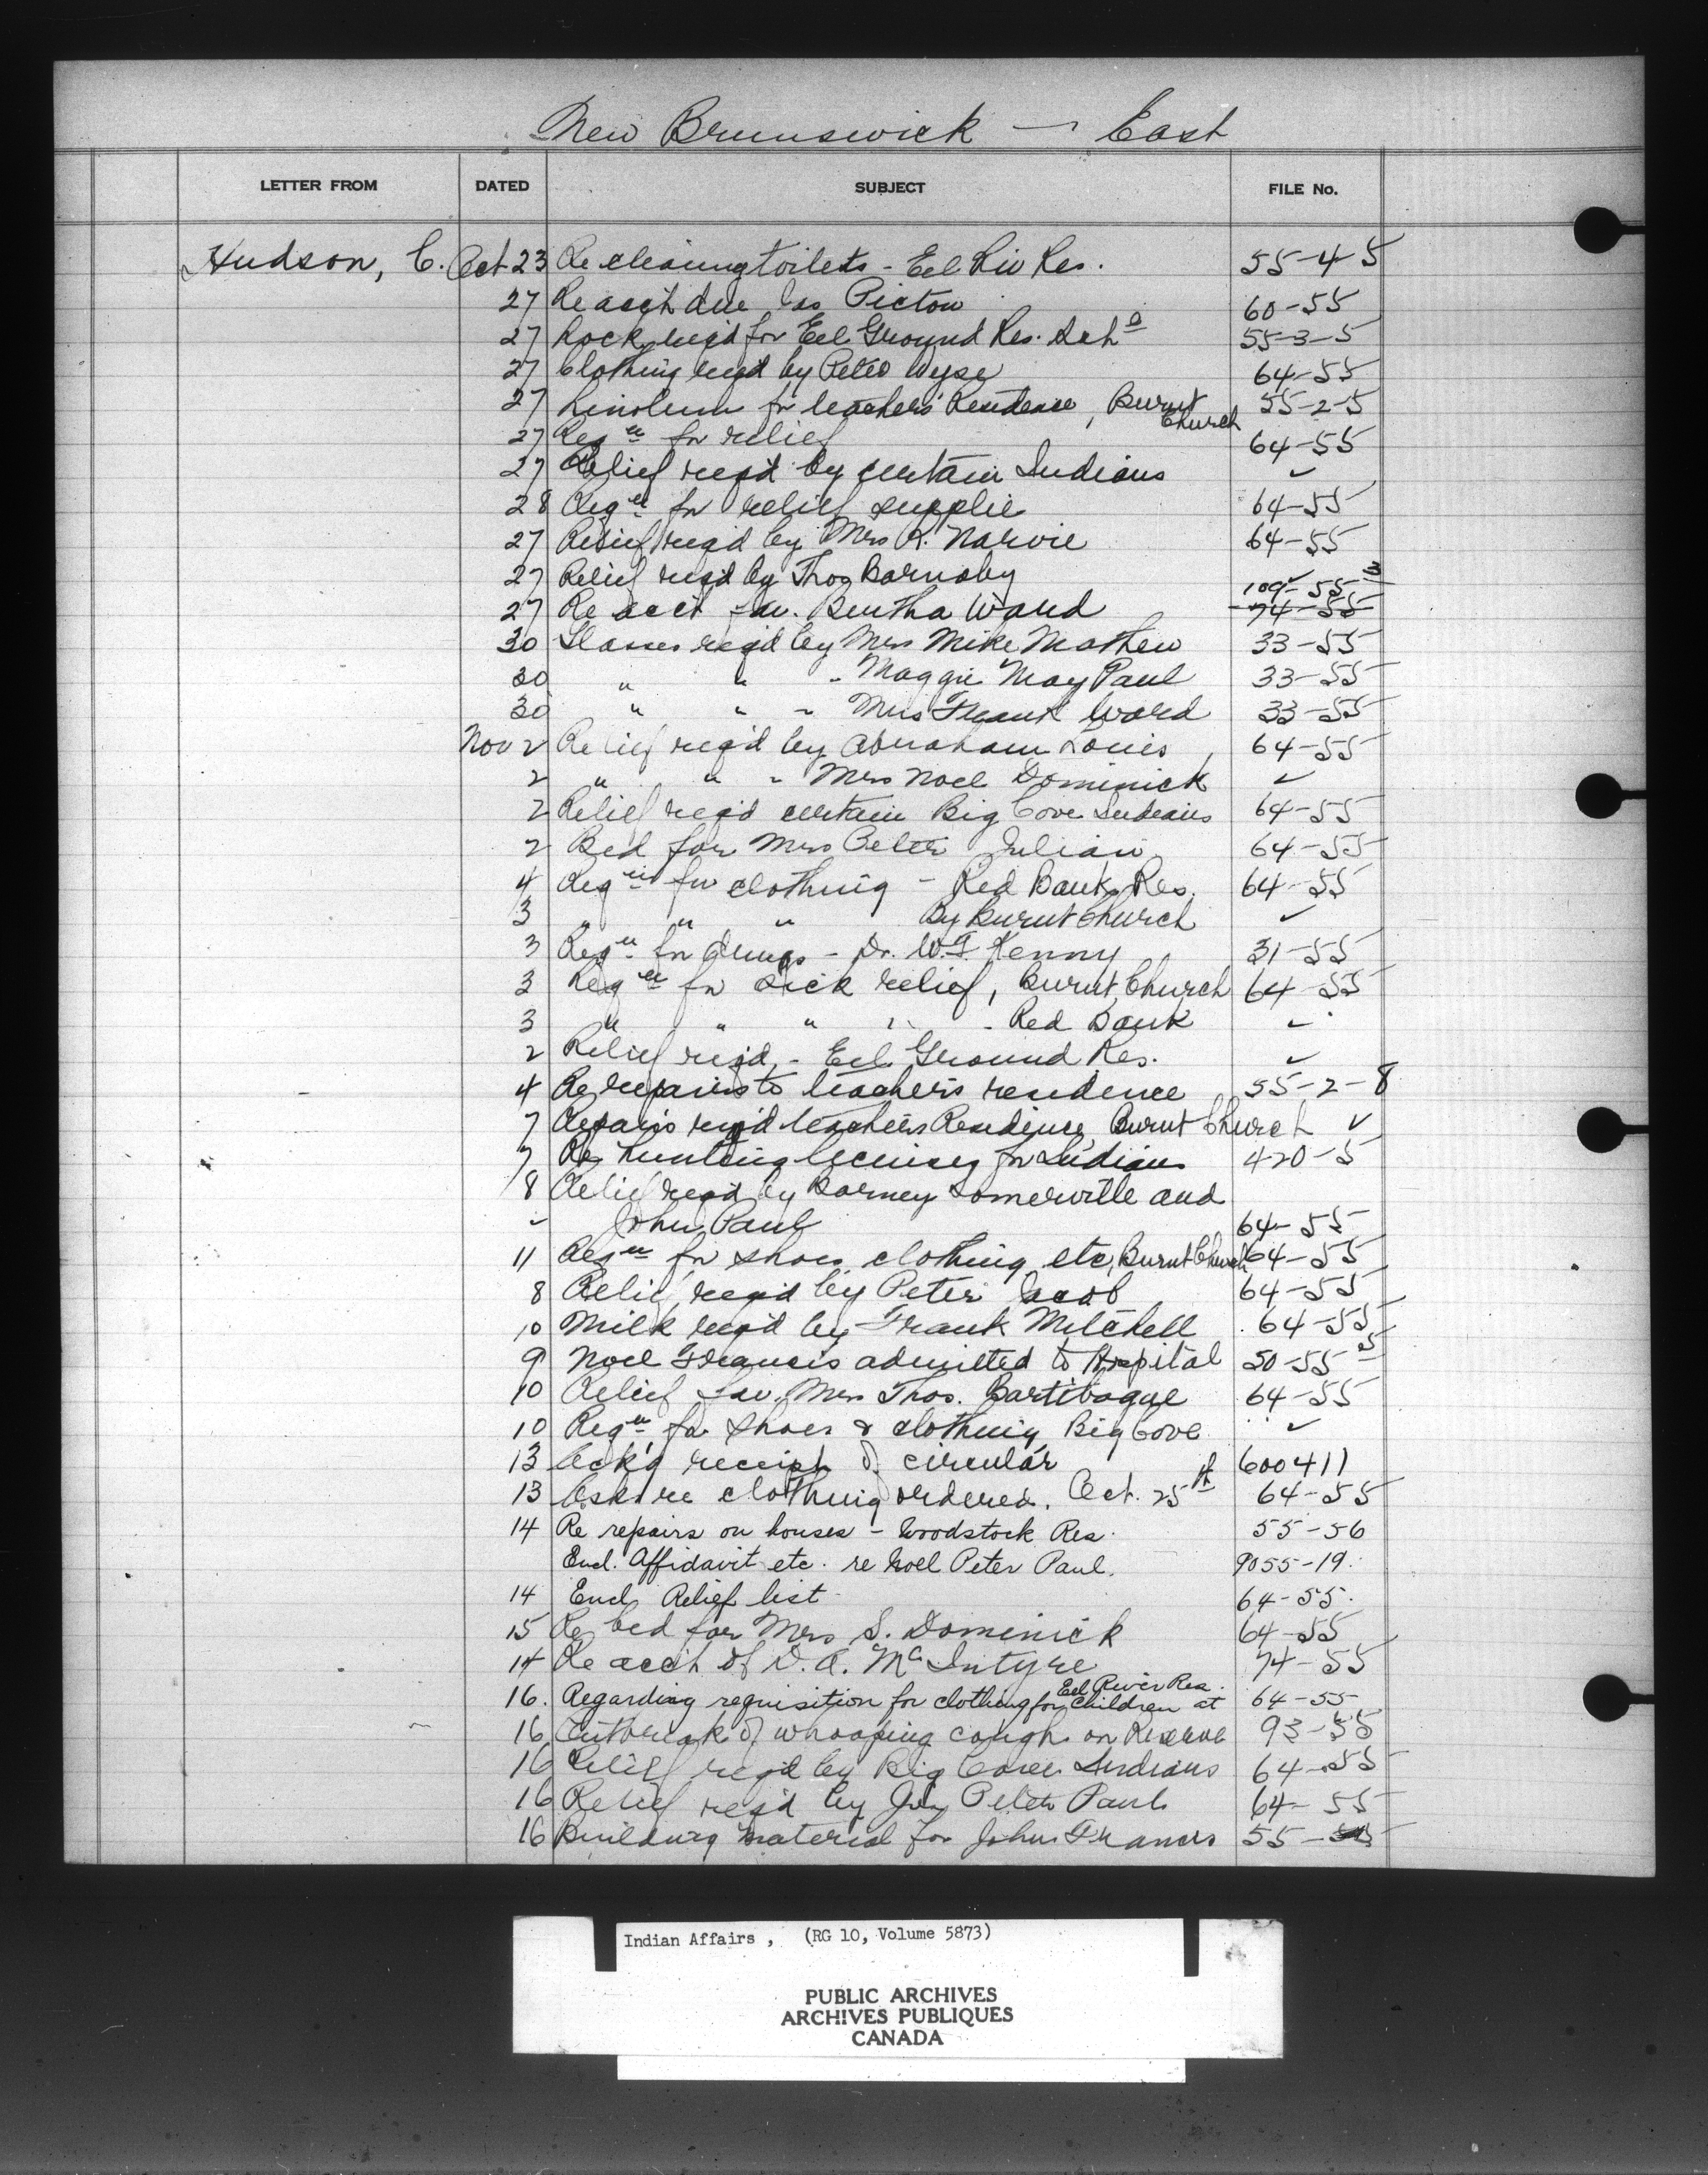 New Brunswick — East
LETTER FROM DATED SUBJECT FILE No.
Hudson, C. Oct 23 Re cleaning toilets - Eel Riv Res. 55-4-5
27 Re acc't due Jas Picton 60-55
27 Lock req'd for Eel Ground Res. Sch 55-3-5
27 Clothing req'd by Peter Wyse 64-55
27 Linoleum for teachers' Residence, Burnt Church 55-2-5
27 Reqn for relief 64-55
27 Relief req'd by certain Indians ✓
28 Reqn for relief supplie 64-55
27 Relief req'd by Mrs R. Narvie 64-55
27 Relief req'd by Thos Barnaby ✓
27 Re acc't fav. Bertha Ward 109-55-3 74-55
30 Glasses req'd by Mrs Mike Mathew 33-55
30 " " " Maggie May Paul 33-55
30 " " " Mrs Frank Ward 33-55
Nov 2 Relief req'd by Abraham Louis, 64-55
2 " " " Mrs Noel Dominick ✓
2 Relief req'd certain Big Cove Indians 64-55
2 Bed for Mrs Peter Julian 64-55
4 Reqn for clothing - Red Bank Res. 64-55
3 " " " By Burnt Church ✓
3 Reqn for drugs - Dr. W.F. Kenny 31-55
3 Reqn for sick relief, Burnt Church 64-55
3 " " " " - Red Bank ✓
2 Relief req'd, - Eel Ground Res. ✓
4 Re repairs to teacher's residence 55-2-8
7 Repairs req'd teachers Residence, Burnt Church ✓
7 Re hunting licenses for Indians 420-5
8 Relief req'd by Barney Somerville and
" John Paul 64-55
11 Reqn for shoes, clothing etc, Burnt Church 64-55
8 Relief req'd by Peter Jacob 64-55
10 Milk req'd by Frank Mitchell 64-55
9 Noel Francis admitted to Hospital 50-55-25
10 Relief fav. Mrs Thos. Bartibogue 64-55
10 Reqn for shoes & clothing, Big Cove ✓
13 Ack'g receipt of circular 600411
13 Ask re clothing ordered. Oct. 25th 64-55
14 Re repairs on houses - Woodstock Res. 55-56
Encl. Affidavit etc. re Noel Peter Paul. 9055-19.
14 Encl Relief list 64-55.
15 Re bed for Mrs S. Dominick 64-55
14 Re acc't of D. A. McIntyre 74-55
16. Regarding requisition for clothing for children at Eel River Res. 64-55
16 Outbreak of whooping cough on Reserve 93-55
16 Relief req'd by Big Cove Indians 64-55
16 Relief req'd by Jos Peter Paul 64-55
16 Building material for John Francis 55-
Indian Affairs , (RG 10, Volume 5873)
PUBLIC ARCHIVES
ARCHIVES PUBLIQUES
CANADA